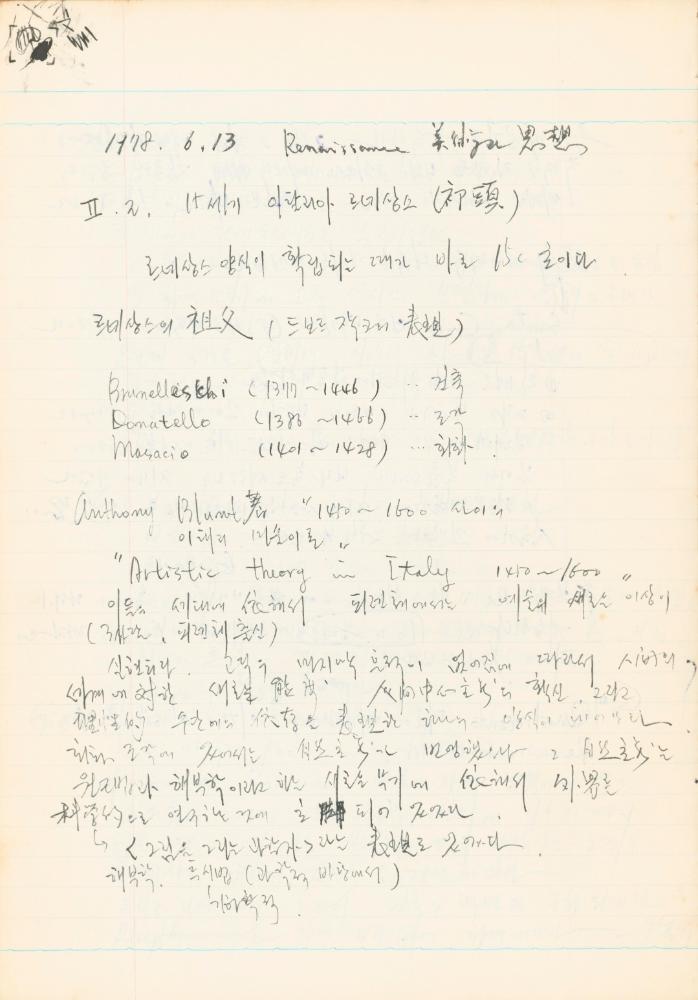 1978. 6. 13 Renaissance 美術과 思想
II. 2. 15세기 이탈리아 르네상스 (初頭)
르네상스 양식이 확립되는 때가 바로 15C 초이다.
르네상스의 祖父 (드보르 작크의 表現)
Brunelleschi (1377 ~ 1446) ‥ 건축
Donatello (1386 ~ 1466) ‥ 조각
Masacio (1401 ~ 1428) … 회화.
Anthony Blunt 著 "1450 ~ 1600 사이의
이태리 미술이론"
"Artistic theory in Italy 1450 ~ 1600"
이들 세대에 依해서 피렌체에서는 예술의 새로운 이상이
(3사람, 피렌체 출신)
실현되다. 고딕의 마지막 흔적이 없어짐에 따라서
세계에 対한 새로운 態度, 人間中心主義의 확신, 그리고
수단에의 依存을 表現한 하나의 양식이
회화, 조각에 있어서는 自然主義가 반영했으나 그 自然主義는
원근법과 해부학이라고 하는 새로운 무기에 依해서 外界를
科学的으로 연구하는 것에 되어 있었다.
↳ <그림을 그리는 과학자>라는 表現도 있었다.
해부학, 투시법 (과학적 바탕에서)
기하학적.